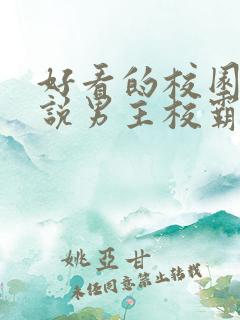 好看的校园
說男主校霸
姚亞甘
未任同意禁止转载